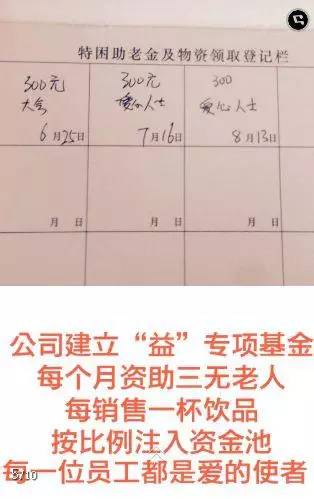 特困助老金及物资领取登记栏
300元 300元 300
大会 爱心人士 爱心人士
6月25日 7月16日 8月13日
月 日 月 日 月 日
公司建立“益”专项基金
每个月资助三无老人
每销售一杯饮品
按比例注入资金池
每一位员工都是爱的使者
5/10